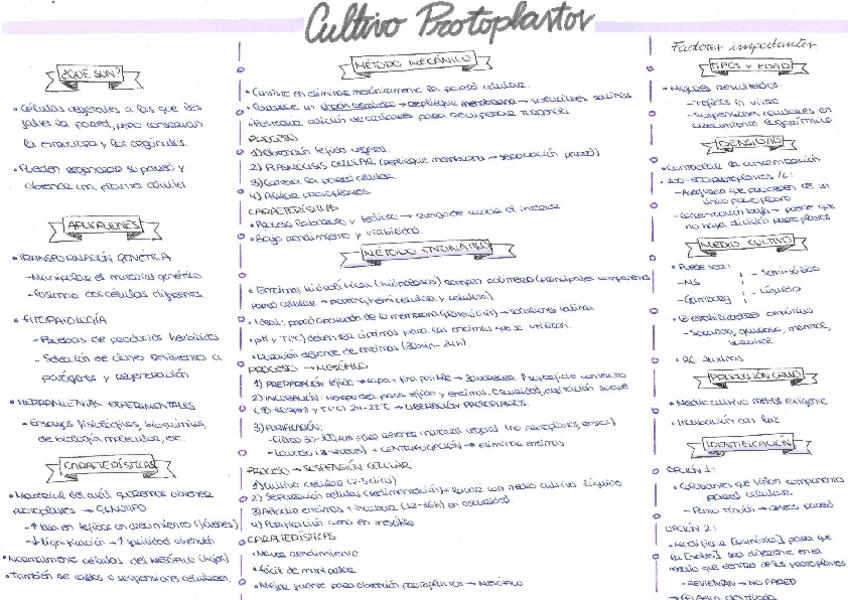 Cultivo Protoplastos
¿QUÉ SON?
• Células vegetales a las que les
falta la pared, pero conservan
la estructura y los orgánulos.
• Pueden regenerar su pared y
obtener una planta
APLICACIONES
• TRANSFORMACIÓN GENÉTICA
- Manipular el material genético
- Fusionar dos células diferentes.
• FITOPATOLOGÍA
- Pruebas de productos herbicidas
- Selección de clones resistentes a
patógenos y regeneración
• HERRAMIENTAS EXPERIMENTALES
- Ensayos fisiológicos, bioquímicos,
de biología molecular, etc.
CARACTERÍSTICAS
• Material del cual queremos obtener
protoplastos → GENOTIPO
- ↑ tasa en tejidos en crecimiento (jóvenes)
- ↓ lignificación → ↑ facilidad obtención
• Normalmente células del MESÓFILO (hojas)
• También de callos o suspensiones celulares.
MÉTODO MECÁNICO
• Consiste en eliminar mecánicamente la pared celular.
• un shock osmótico → repliegue membrana → soluciones salinas
• Posterior adición de azúcares para recuperar
PROCESO
1) Obtención tejido vegetal.
2) PLASMÓLISIS CELULAR (repliegue membrana → separación pared)
3) Cortar la pared celular.
4) protoplastos.
CARACTERÍSTICAS
• Proceso laborioso y tedioso →
• Bajo rendimiento y viabilidad.
MÉTODO ENZIMÁTICO
• Enzimas hidrolíticas (hidrolasas) rompen polímeros (principales componentes
pared celular → pectina, hemicelulosa y celulosa).
• Ideal: pared separada de la membrana (plasmólisis) → soluciones salinas
• pH y T(ºC) deben ser óptimos para las enzimas que se utilicen.
• Duración depende de enzimas (30min - 24h).
PROCESO → MESÓFILO
1) PREPARACIÓN tejido → capa + fina posible → ↑ superficie contacto
2) INCUBACIÓN: tejido y enzimas. Oscuridad, agitación suave
y T(ºC) 24-28ºC → LIBERACIÓN PROTOPLASTOS.
3) PURIFICACIÓN:
- Filtro para retener material vegetal (no protoplastos, restos)
- Lavado + CENTRIFUGACIÓN → eliminar enzimas
PROCESO → SUSPENSIÓN CELULAR
1) Cultivo celular
2) Separación células (sedimentación) + lavar con medio cultivo líquido
3) Añadir enzimas + incubar (12-16h) en oscuridad
4) Purificación como en mesófilo
CARACTERÍSTICAS
• Mayor rendimiento
• fácil de manipular
• Mejor fuente para obtención protoplastos → MESÓFILO
Factores importantes
TIPOS Y EDAD
• Mejores resultados:
- Tejidos in vitro
- Suspensiones celulares en
crecimiento logarítmico
DENSIDAD
• Controlar la concentración
- que proceden de un
único protoplasto
- Concentración baja → puede que
no haya división protoplastos
MEDIO CULTIVO
• Puede ser:
- MS
- Gamborg
- Semisólido
- Líquido
• Estabilizadores osmótico
- Sacarosa, glucosa, manitol,
sorbitol
• RC: Auxinas
• Medio cultivo menos exigente
• Incubación con luz
IDENTIFICACIÓN
OPCIÓN 1:
• Colorantes que tiñen componentes
pared celular
- No tinción → pared
OPCIÓN 2:
• Modificar [osmótica] para que
la [sales] sea diferente en el
medio que dentro de los protoplastos
- REVIENTAN → NO PARED